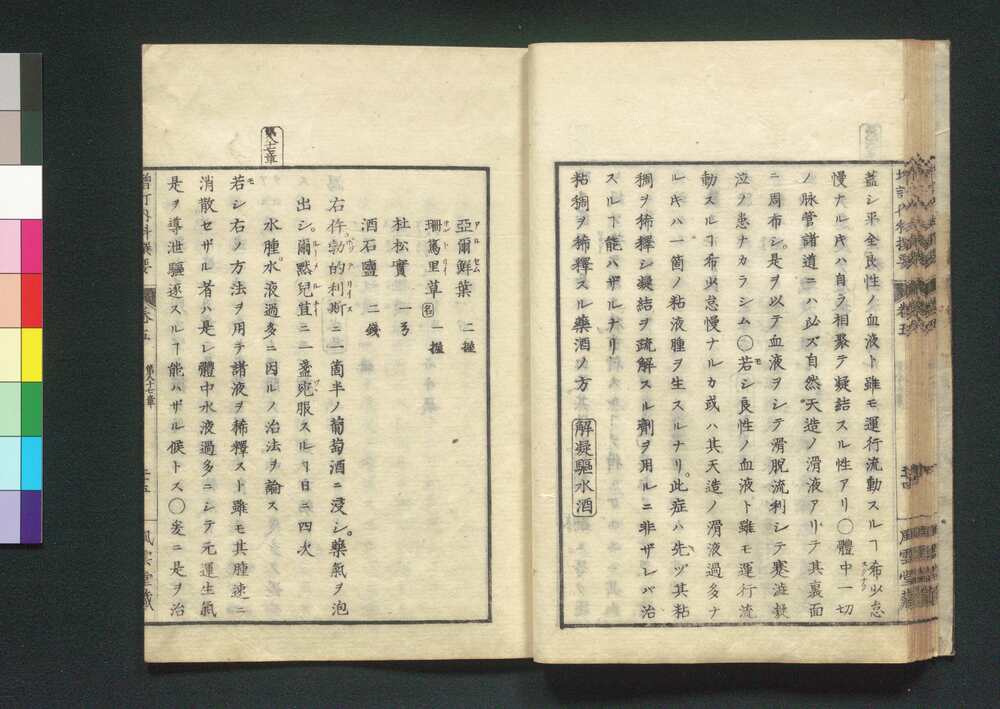 蓋シ平全良性ノ血液ト雖モ運行流動スルヿ希少怠
慢ナル𪜈ハ自ラ相聚テ凝結スル性アリ〇體中一切
ノ脉管諸道ニハ必ズ自然天造ノ滑液アリテ其裏面
ニ周布シ是ヲ以テ血液ヲシテ滑脱流利シテ蹇澁
泣ノ患ナカラシム〇若シ良性ノ血液ト雖モ運行流
動スルヿ希少怠慢ナルカ或ハ其天造ノ滑液過多ナ
ル𪜈ハ一箇ノ粘液腫ヲ生スルナリ此症ハ先ヅ其粘
稠ヲ稀釋シ凝結ヲ疏解スル劑ヲ用ルニ非ザレバ治
スルヿ能ハザルナリ
粘稠ヲ稀釋スル藥酒ノ方 解凝驅水酒
亞爾鮮葉 二握
珊篤里草 名 一握
杜松實 一弓
酒石鹽 二錢
右件勃的利斯ニ一箇半ノ葡萄酒ニ浸シ藥氣ヲ泡
出シ爾黙兒ニ一盞宛服スルヿ日ニ四次
水腫水液過多ニ因ルノ治法ヲ論ス
若シ右ノ方法ヲ用テ諸液ヲ稀釋スト雖モ其腫速ニ
消散セザル者ハ是レ體中水液過多ニシテ元運生氣
是ヲ導泄驅逐スルヿ能ハザル候トス〇爰ニ是ヲ治
第八十七章
增訂内科撰要 卷十五 第八十七章 二十五 風雲堂藏